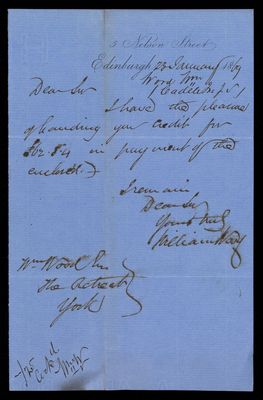 5 Nelson Street
Edinburgh 23 January 1869
Wood Wm
Dear Sir
I have the pleasure
of handing you credit for
in payment of the
enclosed.
I remain
Dear Sir
Yours truly
William Wood
Wm Wood Esq
The Retreat
York